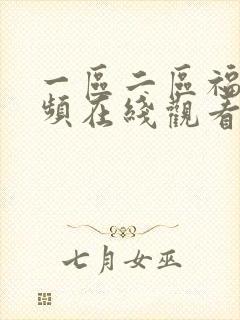 一區二區福
頻在綫觀看
七月女巫